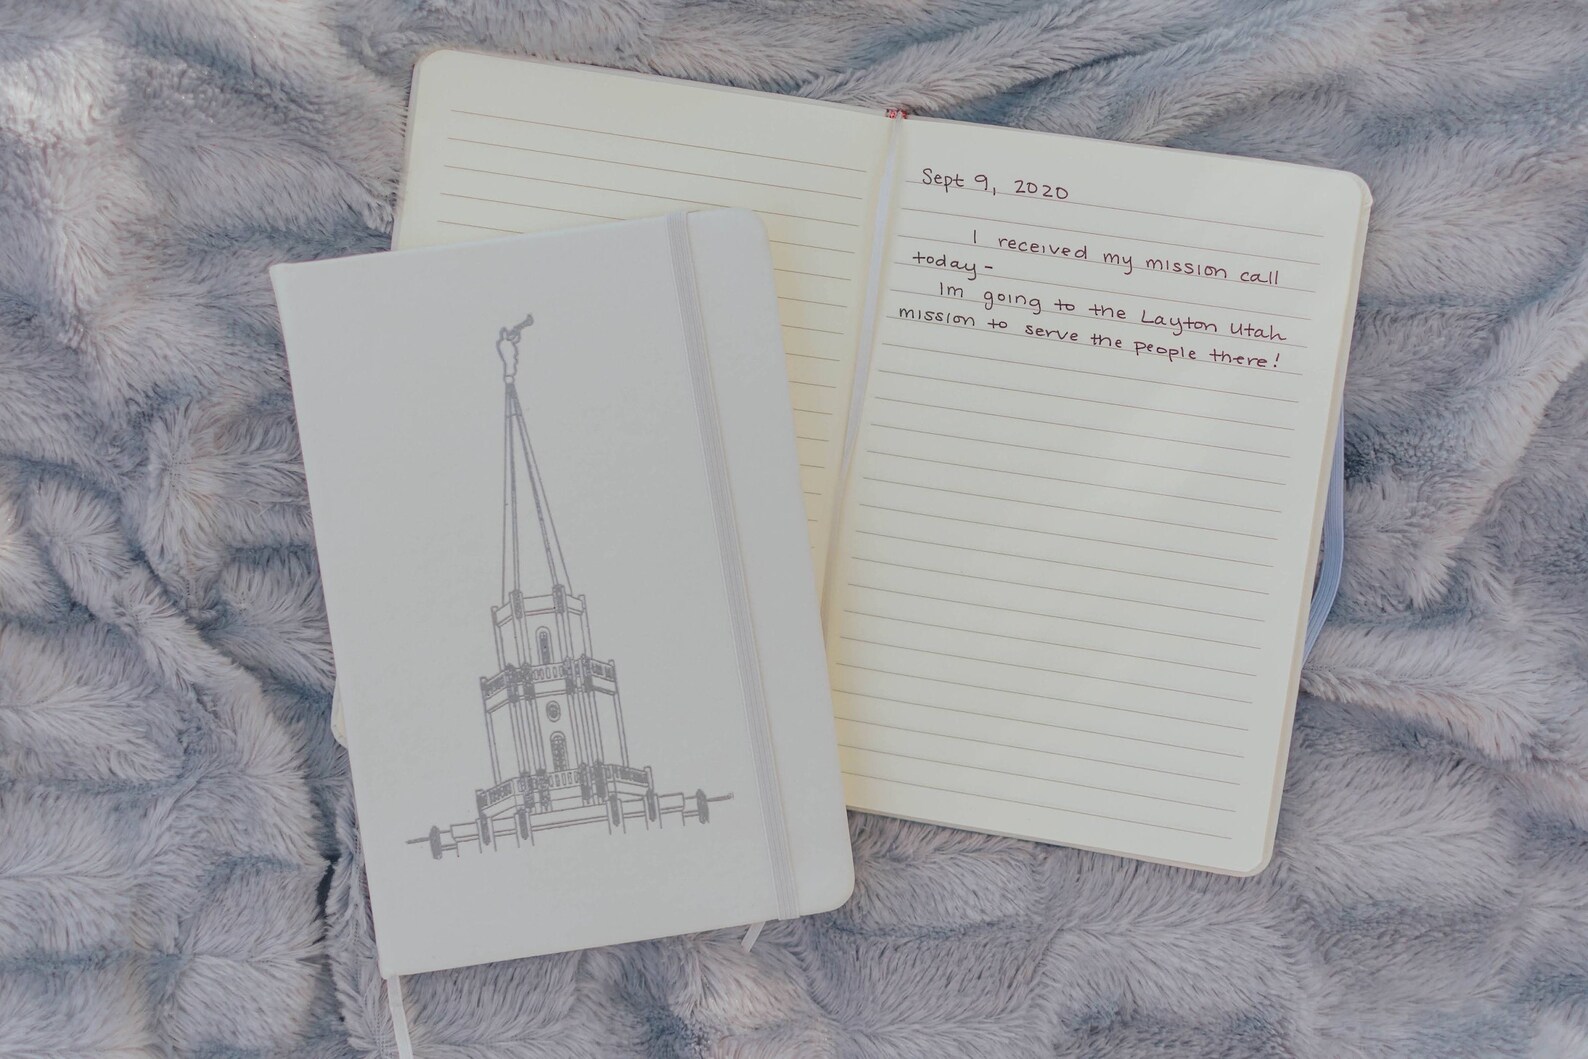 Sept 9, 2020
I received my mission call
today-
Im going to the Layton Utah
mission to serve the people there!